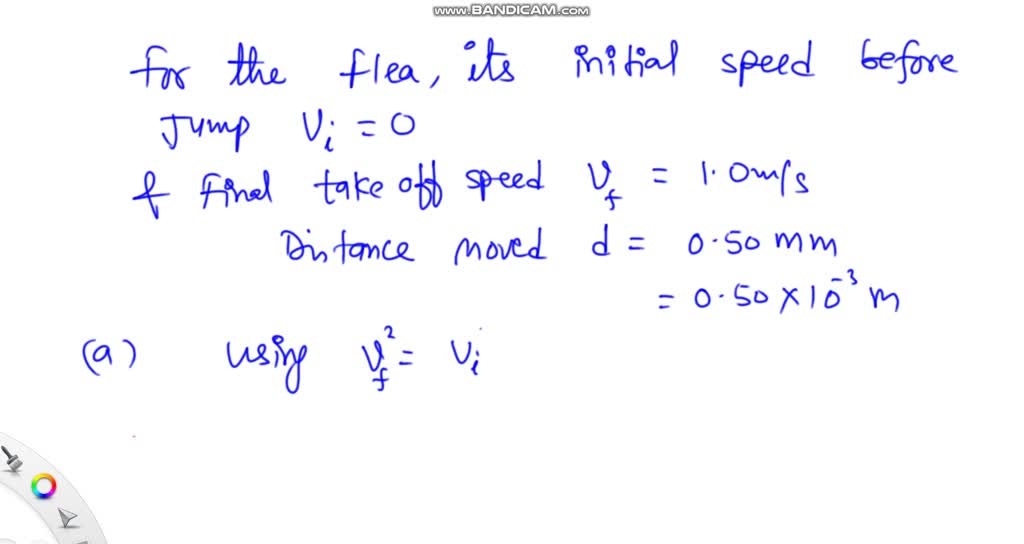 www.BANDICAM.com
for the flea, its initial speed before
Jump Vi = 0
& Final take off speed Vf = 1.0m/s
Distance moved d = 0.50 mm
= 0.50 × 10⁻³ m
(a) using Vf² = Vi